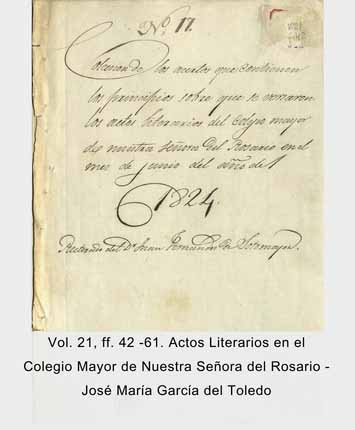 No. 17.
Coleccion de los acertos que contienen
los principios sobre que se versaron
los actos literarios del colegio mayor
de nuestra señora del Rosario en el
mes de junio del año de
1824.
Rectorado del Dr. Juan Fernandez de Sotomayor.
Vol. 21, ff. 42 -61. Actos Literarios en el
Colegio Mayor de Nuestra Señora del Rosario -
José María García del Toledo